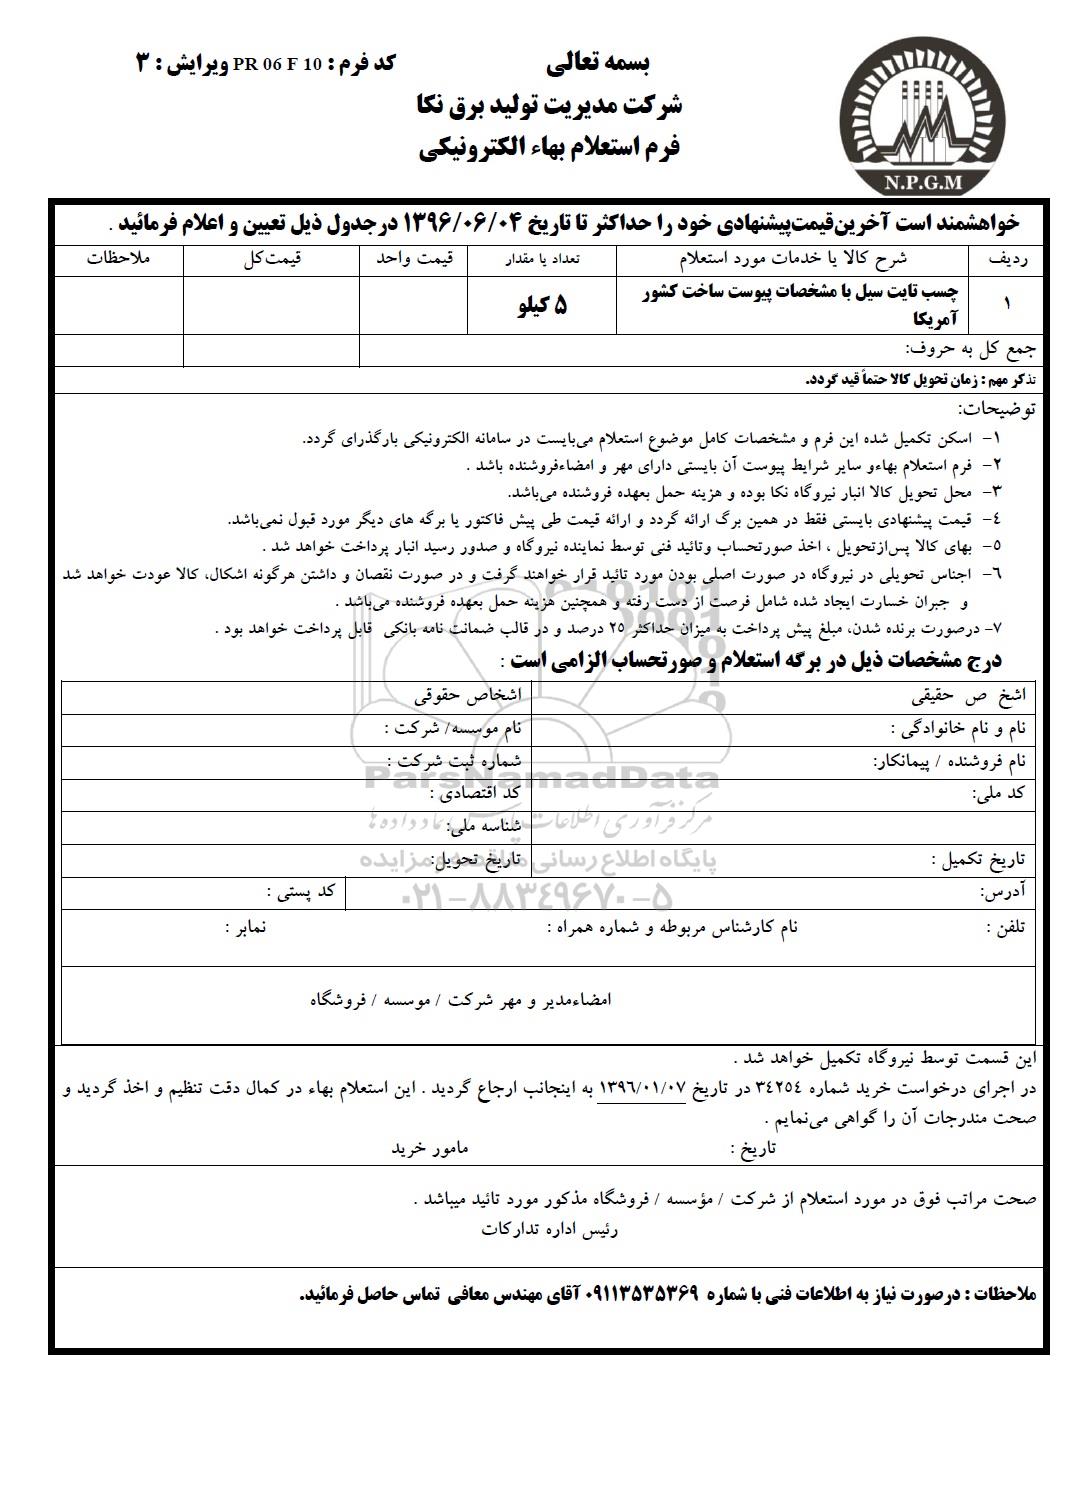 بسمه تعالی
کد فرم : PR 06 F 10 ویرایش : ۳
شرکت مدیریت تولید برق نکا
فرم استعلام بهاء الکترونیکی
N.P.G.M
خواهشمند است آخرین‌قیمت‌پیشنهادی خود را حداکثر تا تاریخ ۱۳۹۶/۰۶/۰۴ درجدول ذیل تعیین و اعلام فرمائید .
ردیف شرح کالا یا خدمات مورد استعلام تعداد یا مقدار قیمت واحد قیمت‌کل ملاحظات
۱ چسب تایت سیل با مشخصات پیوست ساخت کشور آمریکا ۵ کیلو
جمع کل به حروف:
تذکر مهم : زمان تحویل کالا حتماً قید گردد.
توضیحات:
۱- اسکن تکمیل شده این فرم و مشخصات کامل موضوع استعلام می‌بایست در سامانه الکترونیکی بارگذرای گردد.
۲- فرم استعلام بهاءو سایر شرایط پیوست آن بایستی دارای مهر و امضاءفروشنده باشد .
۳- محل تحویل کالا انبار نیروگاه نکا بوده و هزینه حمل بعهده فروشنده می‌باشد.
۴- قیمت پیشنهادی بایستی فقط در همین برگ ارائه گردد و ارائه قیمت طی پیش فاکتور یا برگه های دیگر مورد قبول نمی‌باشد.
۵- بهای کالا پس‌ازتحویل ، اخذ صورتحساب وتائید فنی توسط نماینده نیروگاه و صدور رسید انبار پرداخت خواهد شد .
۶- اجناس تحویلی در نیروگاه در صورت اصلی بودن مورد تائید قرار خواهند گرفت و در صورت نقصان و داشتن هرگونه اشکال، کالا عودت خواهد شد
و جبران خسارت ایجاد شده شامل فرصت از دست رفته و همچنین هزینه حمل بعهده فروشنده می‌باشد .
۷- درصورت برنده شدن، مبلغ پیش پرداخت به میزان حداکثر ۲۵ درصد و در قالب ضمانت نامه بانکی قابل پرداخت خواهد بود .
درج مشخصات ذیل در برگه استعلام و صورتحساب الزامی است :
اشخ ص حقیقی اشخاص حقوقی
نام و نام خانوادگی : نام موسسه/ شرکت :
نام فروشنده / پیمانکار: شماره ثبت شرکت :
ParsNamadData
کد ملی: کد اقتصادی :
مرکز فرآوری اطلاعات پارس نماد داده‌ها
شناسه ملی:
تاریخ تکمیل : تاریخ تحویل:
پایگاه اطلاع رسانی مناقصه و مزایده
آدرس: کد پستی :
۰۲۱-۸۸۳۴۹۶۷۰-۵
تلفن : نام کارشناس مربوطه و شماره همراه : نمابر :
امضاءمدیر و مهر شرکت / موسسه / فروشگاه
این قسمت توسط نیروگاه تکمیل خواهد شد .
در اجرای درخواست خرید شماره ۳۴۲۵۴ در تاریخ ۱۳۹۶/۰۱/۰۷ به اینجانب ارجاع گردید . این استعلام بهاء در کمال دقت تنظیم و اخذ گردید و
صحت مندرجات آن را گواهی می‌نمایم .
تاریخ : مامور خرید
صحت مراتب فوق در مورد استعلام از شرکت / مؤسسه / فروشگاه مذکور مورد تائید میباشد .
رئیس اداره تدارکات
ملاحظات : درصورت نیاز به اطلاعات فنی با شماره ۰۹۱۱۳۵۳۵۳۶۹ آقای مهندس معافی تماس حاصل فرمائید.